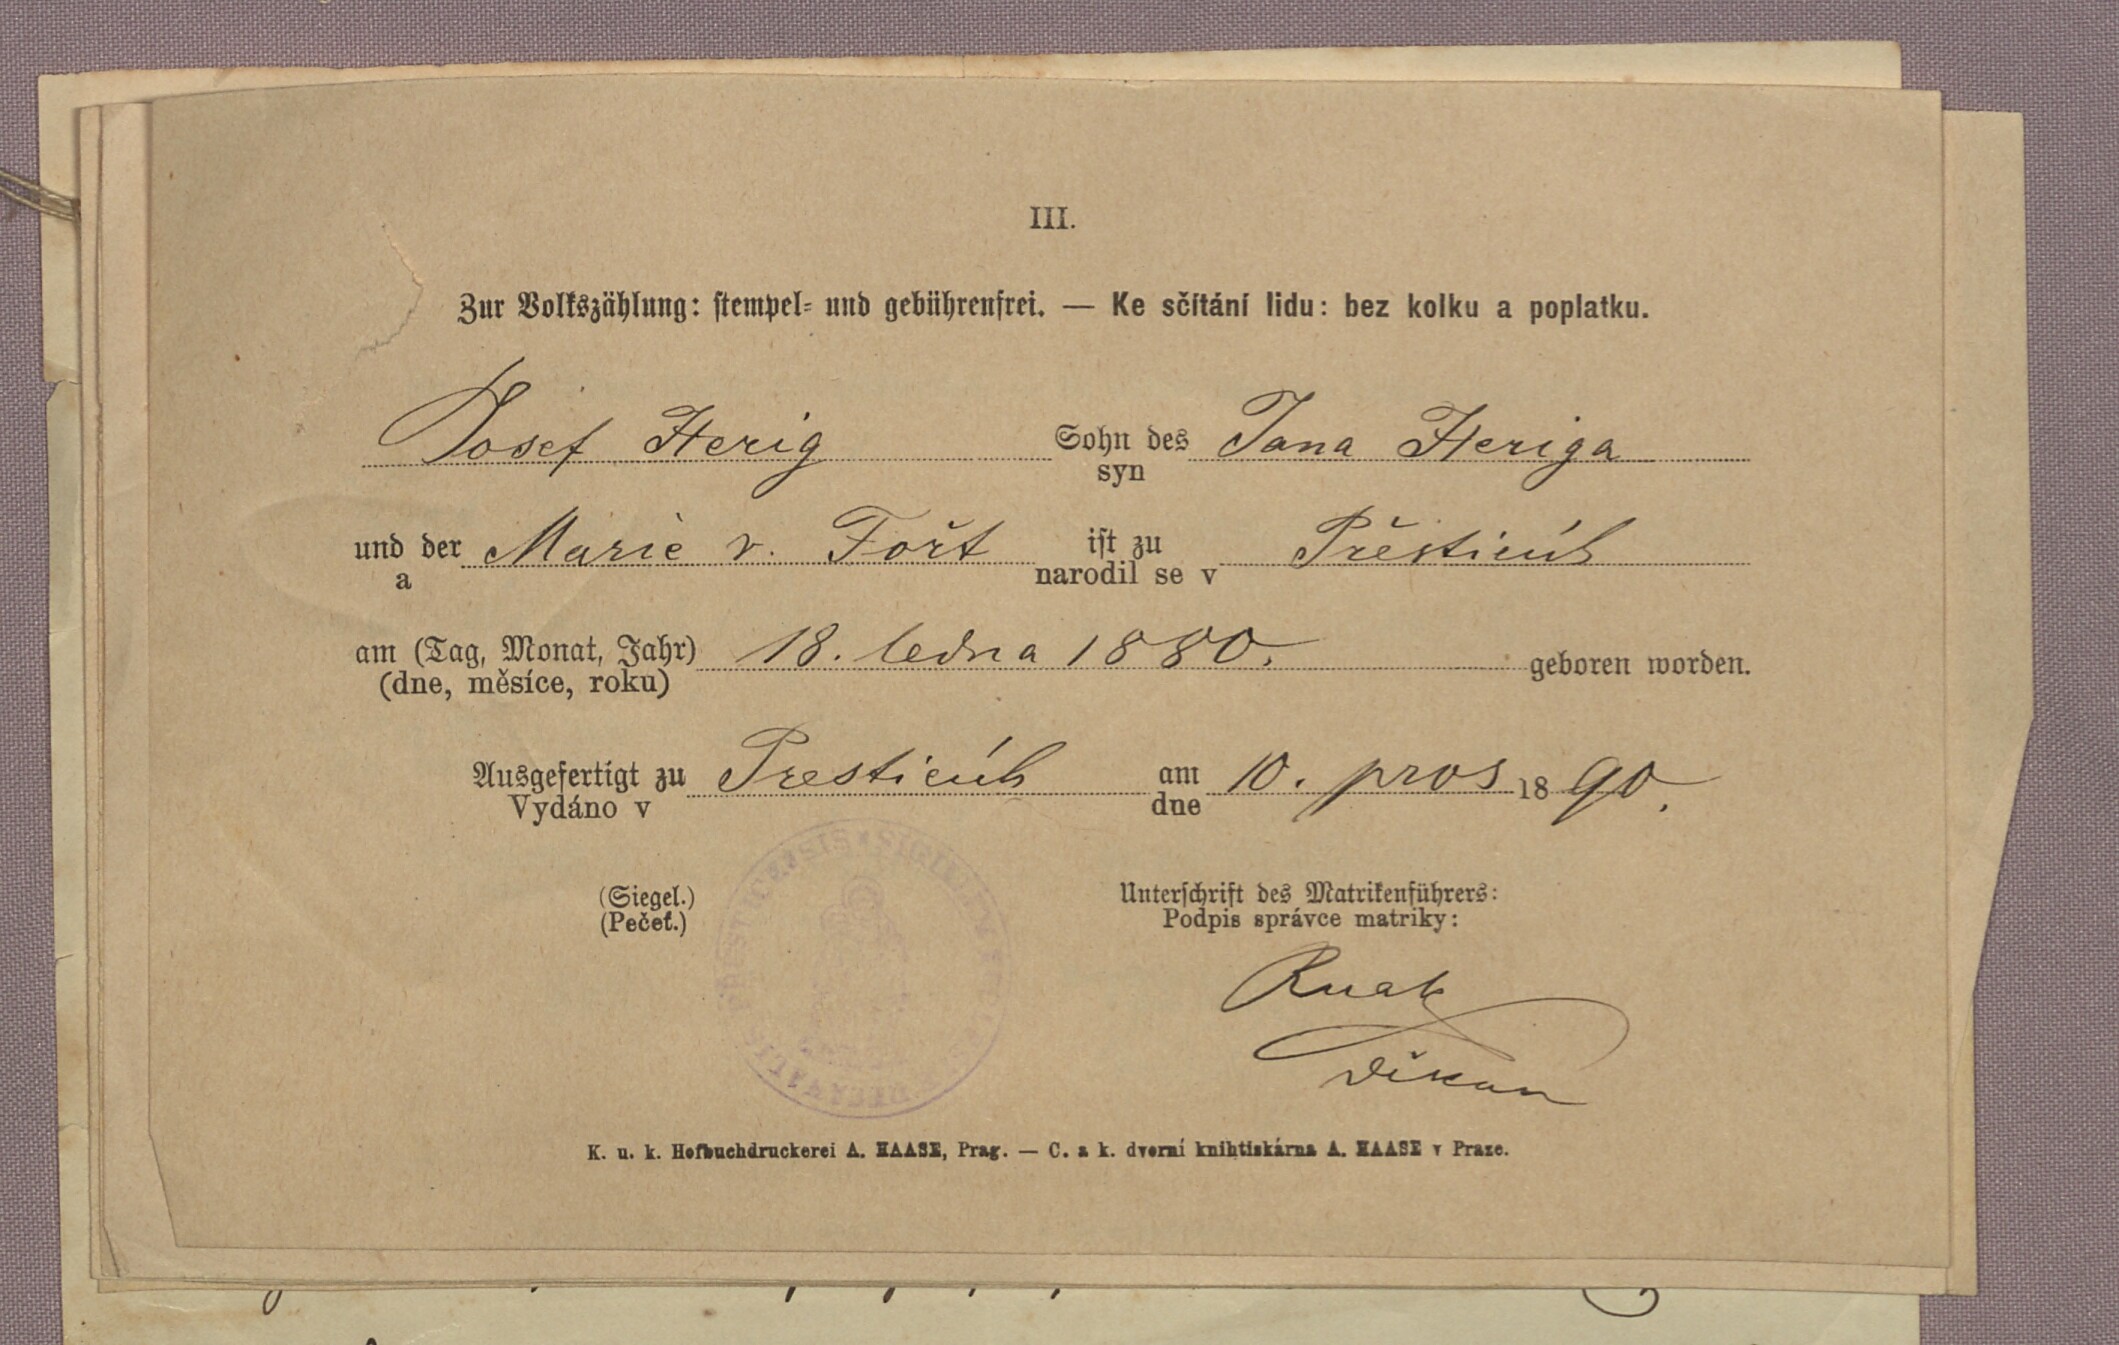 III.
Zur Volkszählung: stempel- und gebührenfrei. — Ke sčítání lidu: bez kolku a poplatku.
Josef Herig Sohn des Jana Heriga
syn
und der Marie r. Fořt ist zu Přešticích
a narodil se v
am (Tag, Monat, Jahr) 18. ledna 1880. geboren worden.
(dne, měsíce, roku)
Ausgefertigt zu Presticích am 10. pros 1890.
Vydáno v dne
(Siegel.) Unterschrift des Matrikenführers:
(Pečeť.) Podpis správce matriky:
děkan
K. u. k. Hofbuchdruckerei A. HAASE, Prag. — C. a k. dvorní knihtiskárna A. HAASE v Praze.